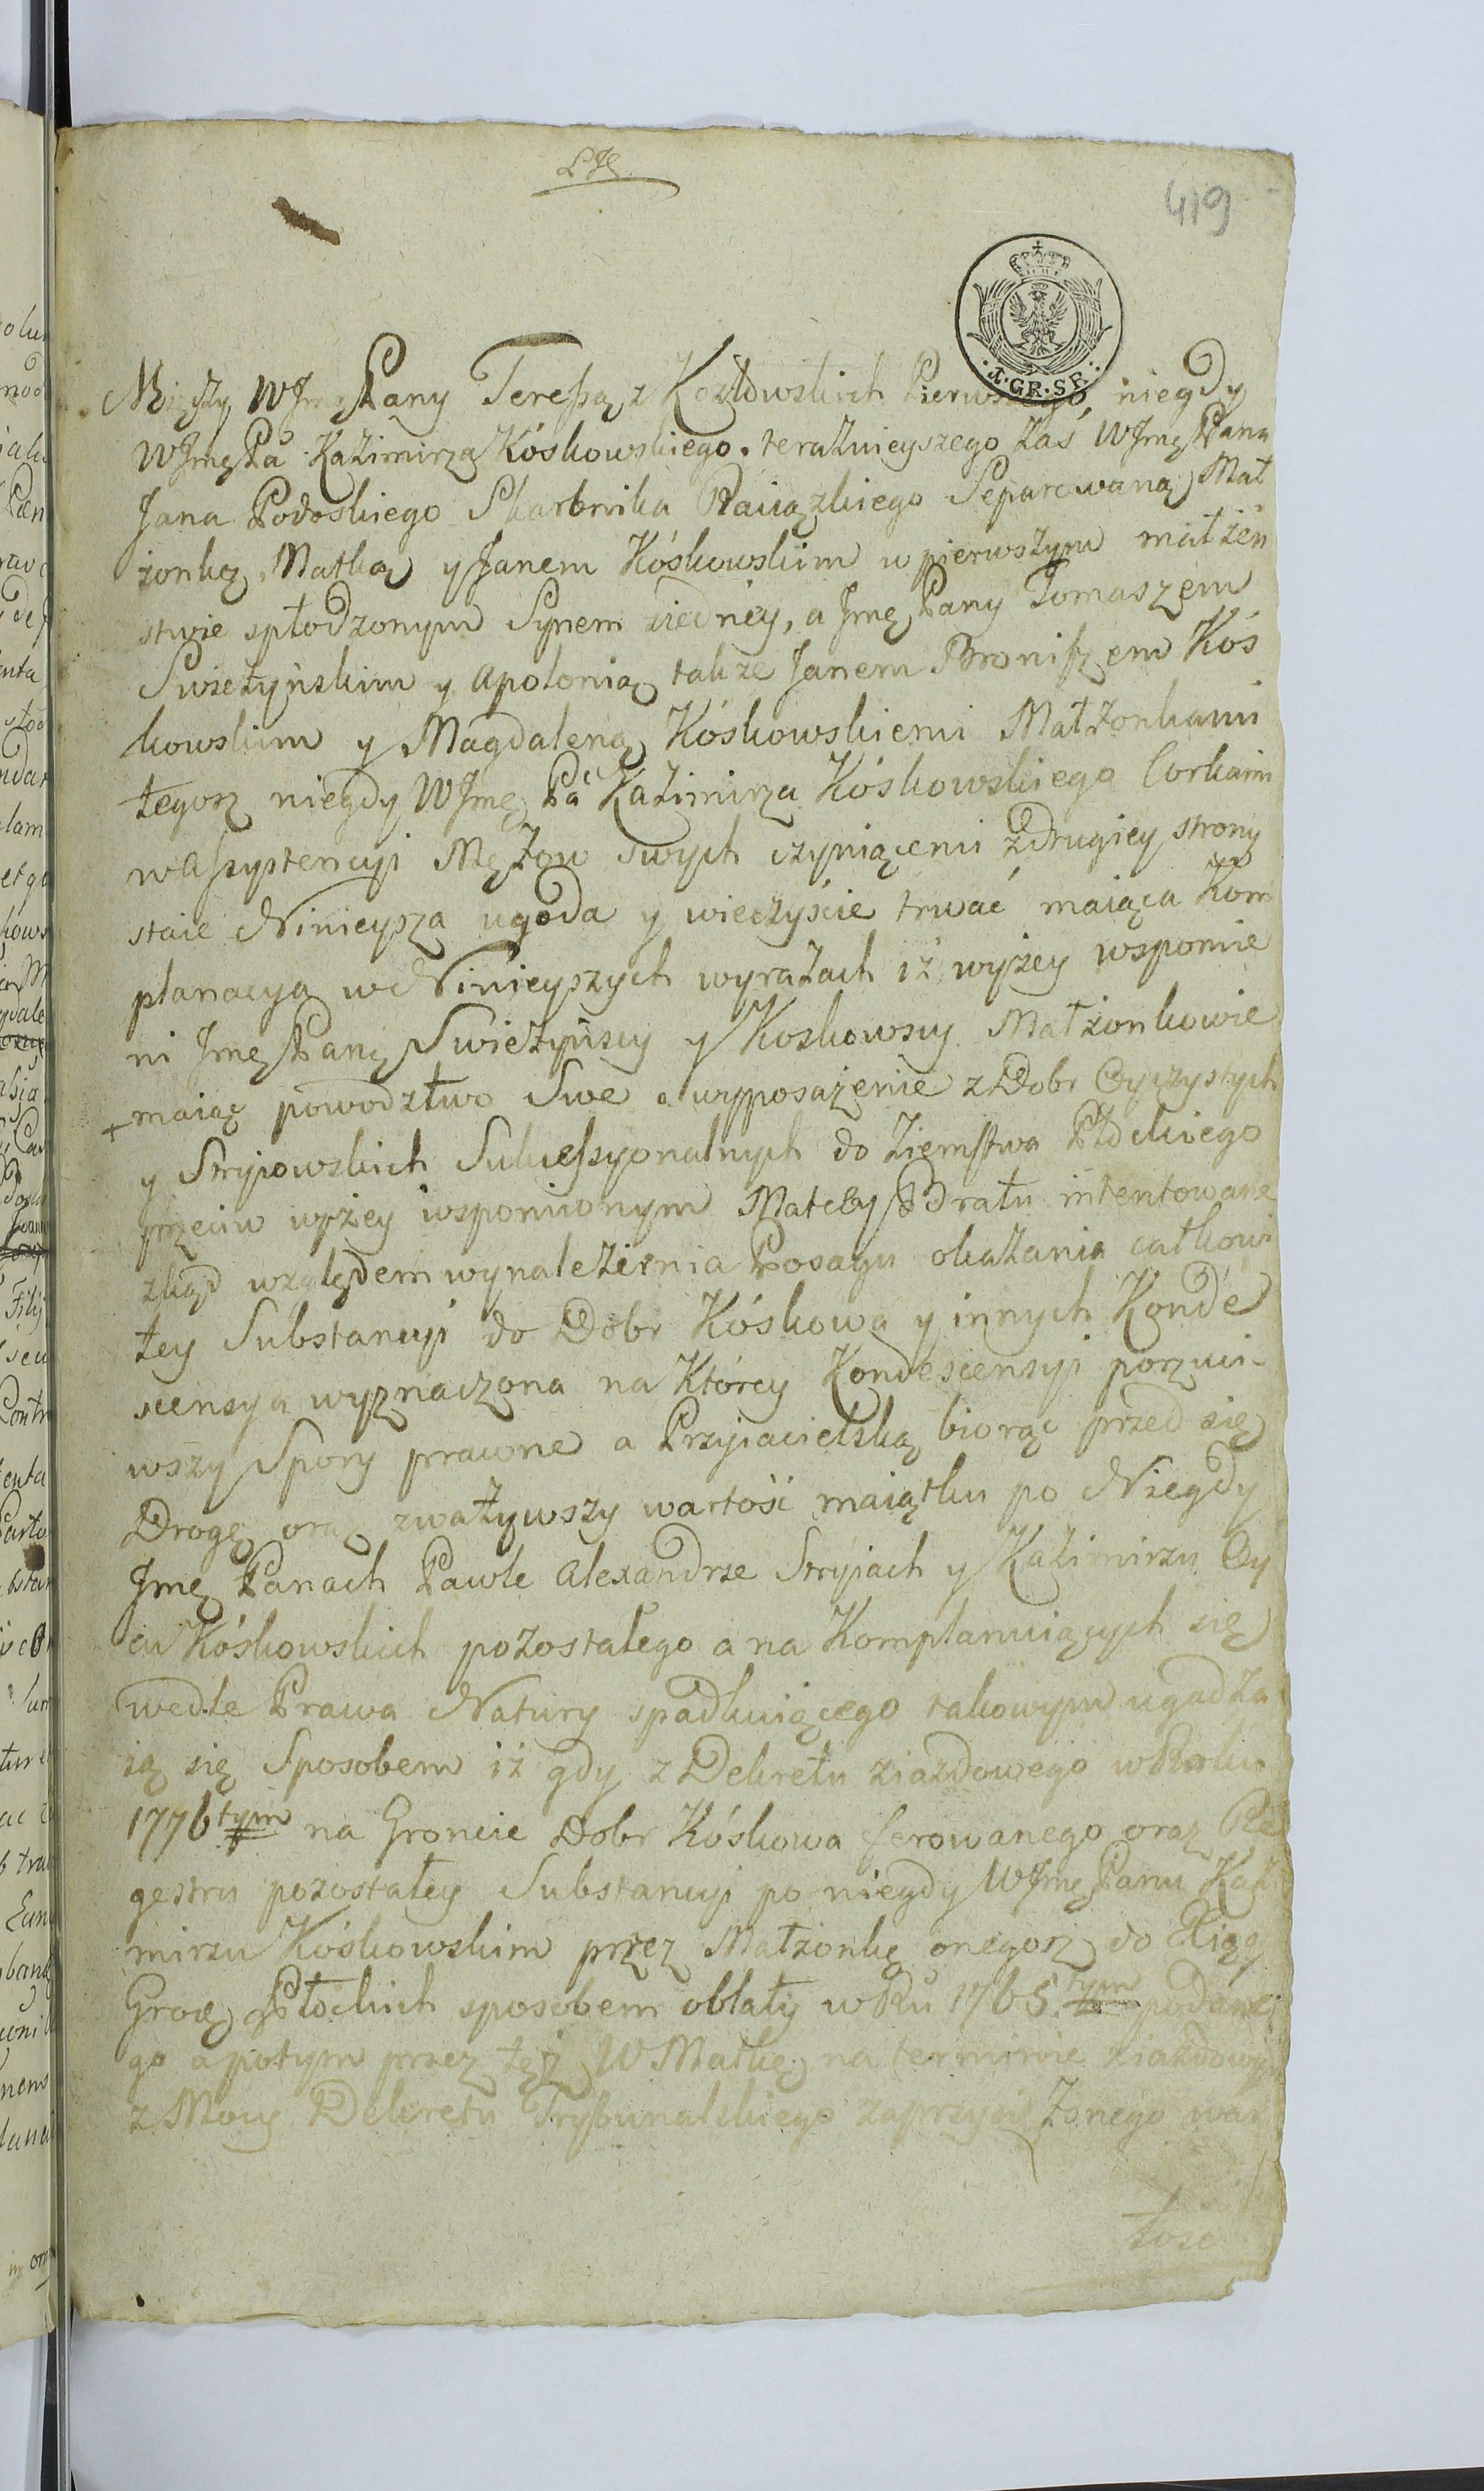 419
I·GR·SR·
Między WJmę Pany Teressą z Kozłowskich Pierwszego niegdy
WJmę Pa Kazimirza Kóskowskiego. teraznieyszego zaś WJmę Pana
Jana Podoskiego Skarbnika Raciązkiego Separowaną Mał
żonką, Matką y Janem Kóskowskim w pierwszym małżen
stwie spłodzonym Synem ziedney, a Jmę Pany Tomaszem
Swiezyńskim y Apolonią także Janem Broniszem Kós
kowskim y Magdaleną Kóskowskiemi Małżonkami
tegosz niegdy WJmę Pa Kazimirza Kóskowskiego Corkami
w Assystencyi Mężow swych czyniącemi z drugiey strony
staie Ninieysza ugoda y wieczyście trwać maiąca Kom
planacya w Ninieyszych wyrazach iż wyżey wspomie
ni Jmę Pany Swiezyńscy y Koskowscy Małżonkowie
+ maiąc powodztwo Swe o wyposażenie z Dobr Oyczystych
y Stryiowskich Sukcessyonalnych do Ziemstwa Płockiego
przeciw wyżey wspomionym Matce y Bratu intentowane
zkąd względem wynalezienia Posagu okazania całkowi
tey Substancyi do Dobr Kóskowa y innych Konde
scensya wyznaczona na Którey Kondescensyi porzuci-
wszy Spory prawne a Przyiacielską biorąc przed się
Drogę oraz zważywszy wartość maiątku po Niegdy
Jmę Panach Pawle Alexandrze Stryiach y Kazimirzu Oy
cu Kóskowskich pozostałego a na Komplanuiących się
wedle Prawa Natury spadkuiącego takowym ugadza
ią się Sposobem iż gdy z Dekretu ziazdowego w Roku
1776tym na Groncie Dobr Kóskowa ferowanego oraz Re
gestru pozostałey Substancyi po niegdy WJmę Panu Kazi
mirzu Kóskowskim przez Małżonkę onegosz do Xiąg
Grod: Płockich sposobem oblaty w Ru 1765.tym podane
go a potym przez tęż W Matkę na terminie ziazdowym
z Mocy Dekretu Trybunalskiego zaprzysiężonego war
tosc